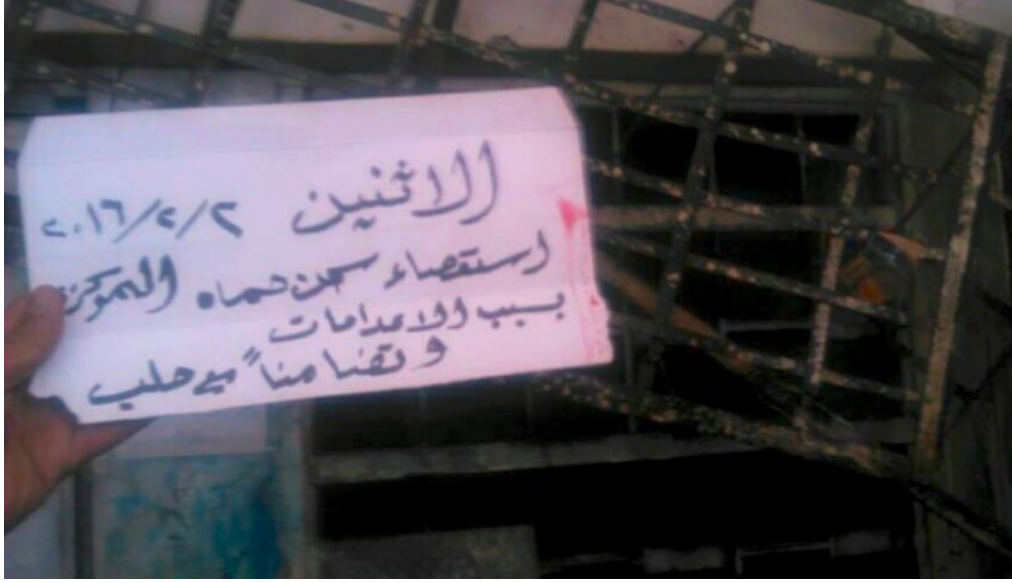 الاثنين ٢/٢/٢٠١٦
استقصاء سجن حماه المركزي
بسبب الاعدامات
وتضامناً مع حلب